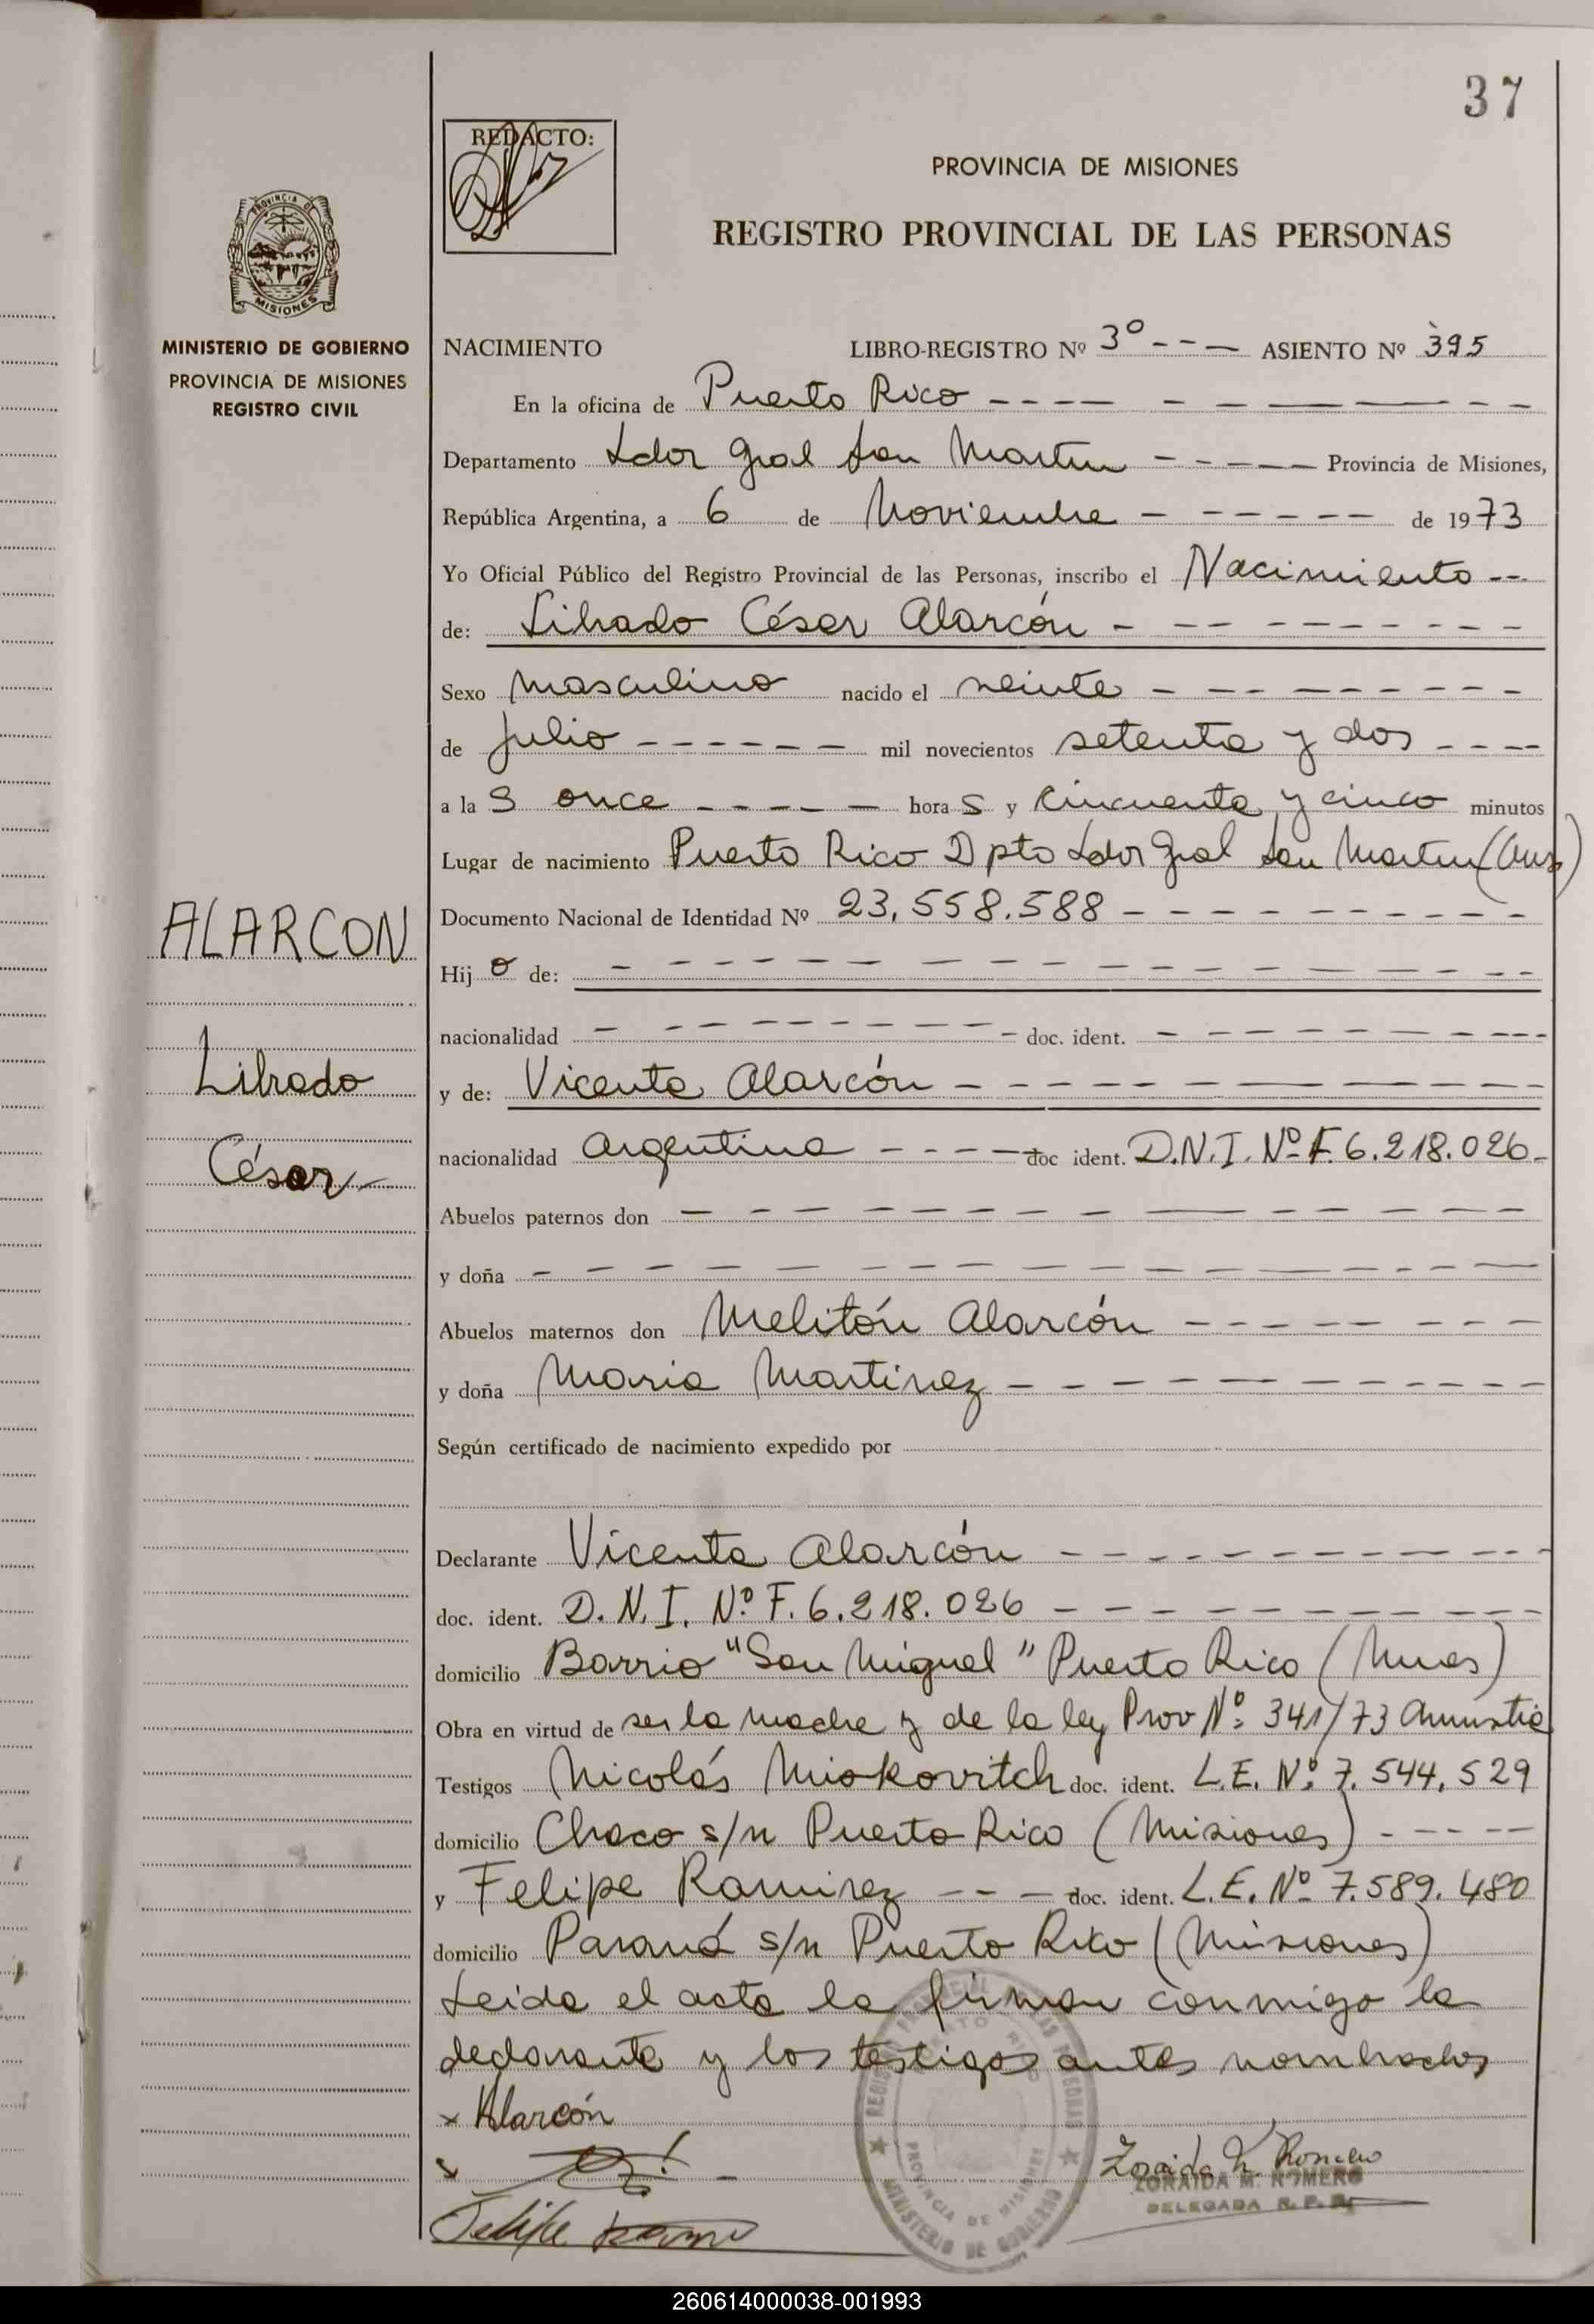 37
REDACTO:
PROVINCIA DE MISIONES
REGISTRO PROVINCIAL DE LAS PERSONAS
PROVINCIA DE
MISIONES
MINISTERIO DE GOBIERNO
PROVINCIA DE MISIONES
REGISTRO CIVIL
NACIMIENTO LIBRO-REGISTRO Nº 3º - - - ASIENTO Nº 395
En la oficina de Puerto Rico - - - -
Departamento Ldor Gral San Martin - - - - - Provincia de Misiones,
República Argentina, a 6 de Noviembre - - - - - - de 1973
Yo Oficial Público del Registro Provincial de las Personas, inscribo el Nacimiento - -
de: Librado César Alarcón - - - -
Sexo masculino nacido el veinte - - - -
de Julio - - - - - - mil novecientos setenta y dos - - - -
a la s once - - - - - hora s y cincuenta y cinco minutos
Lugar de nacimiento Puerto Rico Dpto Ldor Gral San Martin (Mnes)
Documento Nacional de Identidad Nº 23.558.588 - - - -
Hij o de: - - - -
nacionalidad - - - - doc. ident. - - - -
y de: Vicenta Alarcón - - - -
nacionalidad Argentina - - - - doc ident. D.N.I. Nº F. 6.218.026 -
Abuelos paternos don - - - -
y doña - - - -
Abuelos maternos don Melitón Alarcón - - - -
y doña Maria Martinez - - - -
Según certificado de nacimiento expedido por
Declarante Vicenta Alarcón - - - -
doc. ident. D.N.I. Nº F. 6.218.026 - - - -
domicilio Barrio "San Miguel" Puerto Rico (Mnes)
Obra en virtud de ser la madre y de la ley Prov Nº 341/73 Amnistia
Testigos Nicolás Miskovitch doc. ident. L.E. Nº 7.544.529
domicilio Chaco s/n Puerto Rico (Misiones) - - - -
y Felipe Ramirez - - - doc. ident. L.E. Nº 7.589.480
domicilio Paraná s/n Puerto Rico (Misiones)
Leida el acta la firman conmigo la
declarante y los testigos antes nombrados
x Alarcón
x
Felipe
Zoraida M. Romero
ZORAIDA M. ROMERO
DELEGADA R. P. P.
PROVINCIA DE MISIONES
MINISTERIO DE GOBIERNO
ALARCON
Librado
César
260614000038-001993